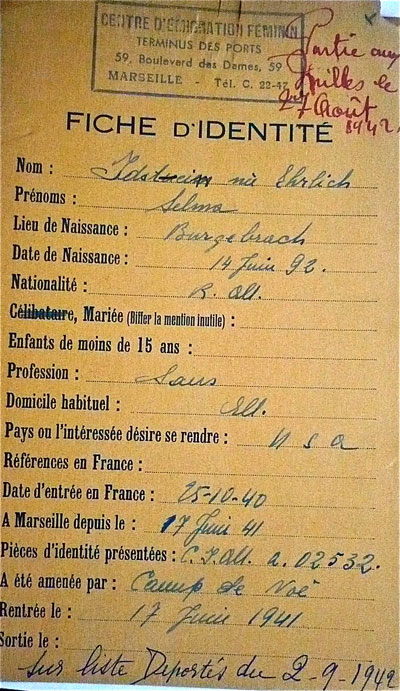 CENTRE D'ÉMIGRATION FÉMININ
TERMINUS DES PORTS
59, Boulevard des Dames, 59
MARSEILLE - Tél. C. 22-47
Partie aux
Milles le
27 Août
1942.
FICHE D'IDENTITÉ
Nom : Idstein né Ehrlich
Prénoms : Selma
Lieu de Naissance : Burgebrach
Date de Naissance : 14 Juin 92.
Nationalité : R. All.
Célibataire, Mariée (Biffer la mention inutile) :
Enfants de moins de 15 ans :
Profession : Sans
Domicile habituel : All.
Pays ou l'intéressée désire se rendre : U S A
Références en France :
Date d'entrée en France : 25-10-40
A Marseille depuis le : 17 Juin 41
Pièces d'identité présentées : C. I. All. A. 02532.
A été amenée par : Camp de Noé
Rentrée le : 17 Juin 1941
Sortie le :
Sur liste Deportés du 2-9-1942